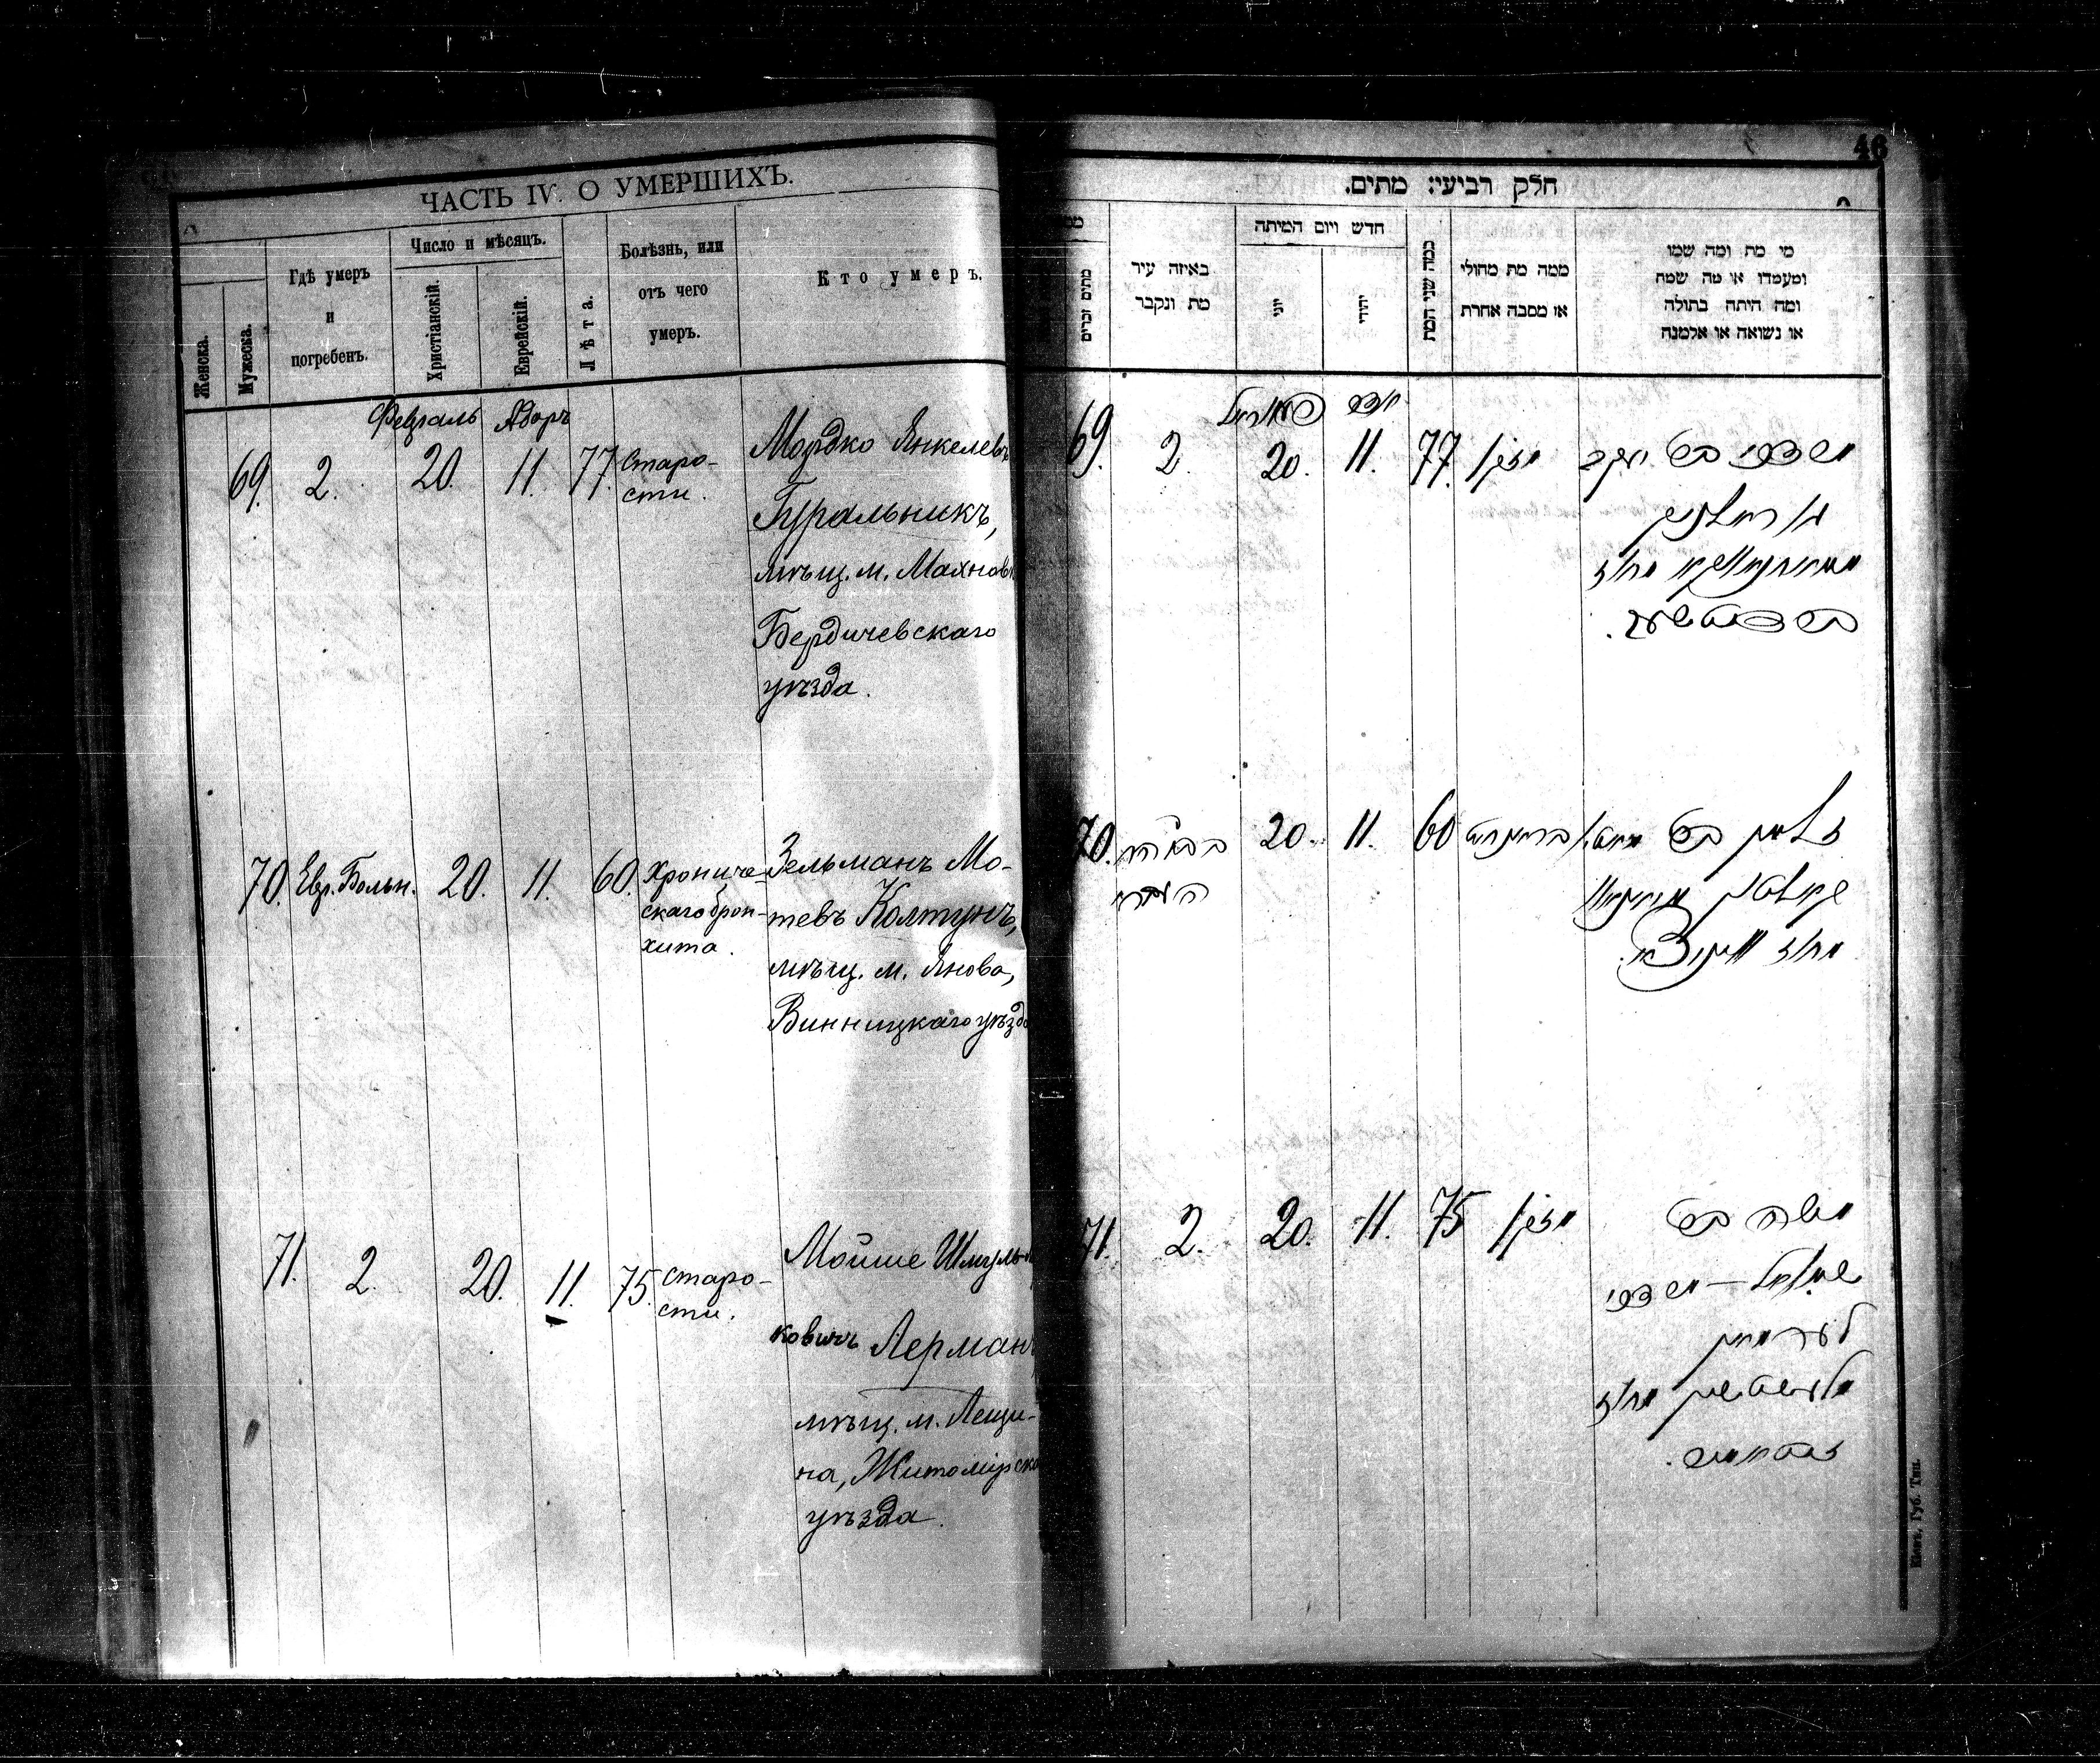 ЧАСТЬ IV. О УМЕРШИХЪ.
Женска.
Мужеска.
Гдѣ умеръ
и
погребенъ.
Число и мѣсяцъ.
Христіанскій.
Еврейскій.
Лѣта.
Болѣзнь, или
отъ чего
умеръ.
Кто умеръ.
Февраль Адоръ
69. 2. 20. 11. 77. Старо-
сти.
Мордко Янкелев
Гуральникъ,
мѣщ. м. Махнов
Бердичевскаго
уѣзда.
70. Евр. Больн. 20. 11. 60. Хрониче-
скаго брон-
хита.
Зельманъ Мо-
тевъ Колтунъ,
мѣщ. м. Янова,
Винницкаго уѣзд
71. 2. 20. 11. 75. Старо-
сти.
Мойше Шмуль
ковичъ Лерман
мѣщ. м. Лещи-
на, Житомірск
уѣзда.
46
חלק רביעי: מתים.
מתים זכרים
באיזה עיר
מת ונקבר
חדש ויום המיתה
יוני
יהודי
כמה שני המת
ממה מת מחולי
או מסבה אחרת
מי מת ומה שמו
ומעמדו או מה שמה
ומה היתה בתולה
או נשואה או אלמנה
69. 2. 20. 11. 77. מזקן
מרדכי בר יעקב
70. 20. 11. 60
זלמן בר
71. 2. 20. 11. 75 מזקן
משה בר
שמואל – מרדכי
לערמאן
Кіев. Губ. Тип.